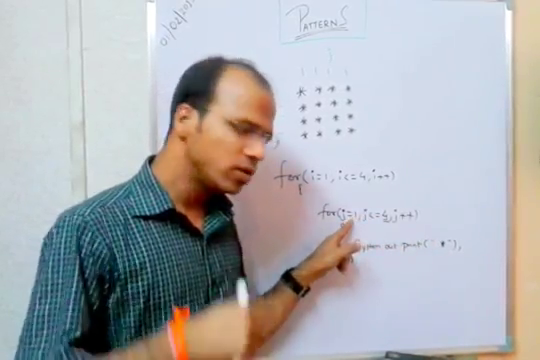 01/02/20
PATTERNS
* * * *
* * * *
* * * *
* * * *
for(i=1, i<=4, i++)
for(j=1, j<=4, j++)
System.out.print(" * "),